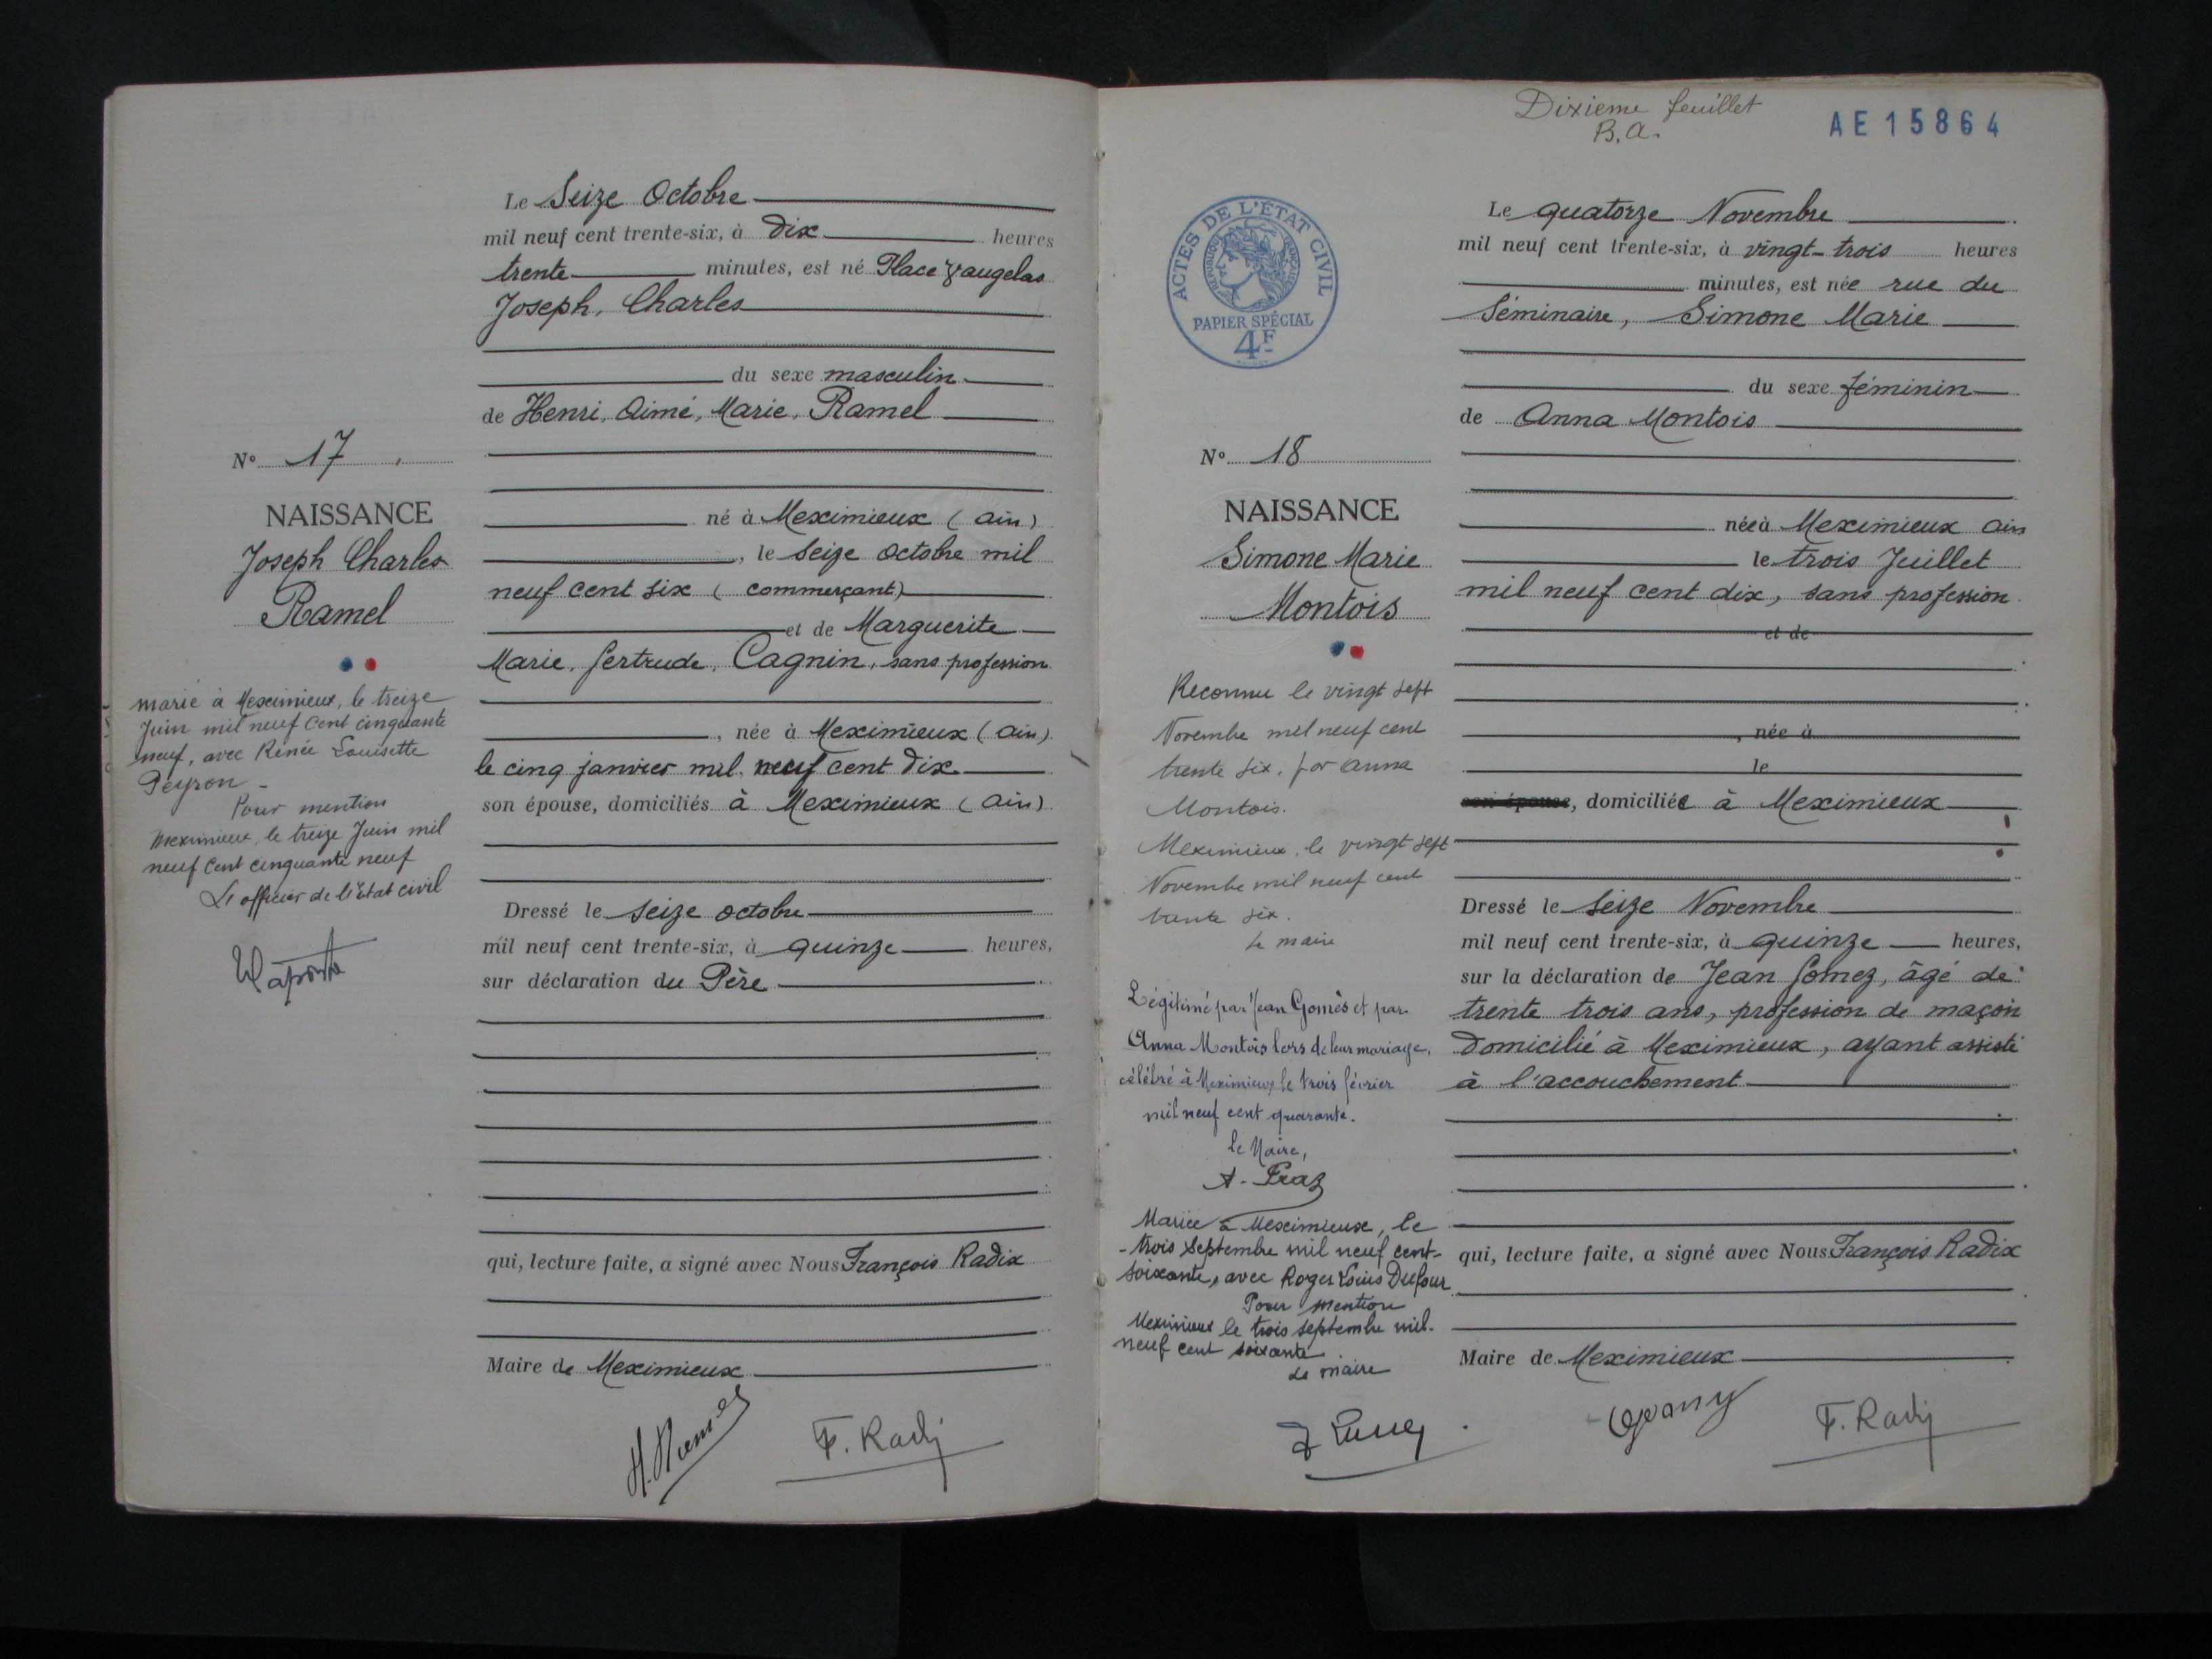 Le Seize Octobre
mil neuf cent trente-six, à dix heures
trente minutes, est né Place Vaugelas
Joseph, Charles
du sexe masculin
de Henri, Aimé, Marie, Ramel
N° 17
NAISSANCE
Joseph Charles
Ramel
né à Meximieux (Ain)
, le seize octobre mil
neuf cent six (commerçant)
et de Marguerite
Marie, Gertrude, Cagnin, sans profession
, née à Meximieux (Ain)
le cinq janvier mil neuf cent dix
son épouse, domiciliés à Meximieux (Ain)
marié à Meximieux, le treize
Juin mil neuf cent cinquante
neuf, avec Rénée Louisette
Peyron -
Pour mention
Meximieux, le treize Juin mil
neuf cent cinquante neuf
L'officier de l'état civil
Dressé le seize octobre
mil neuf cent trente-six, à quinze heures,
sur déclaration du Père
qui, lecture faite, a signé avec Nous François Radix
Maire de Meximieux
H. Ramel
F. Radix
Dixieme feuillet
B.A.
AE15864
ACTES DE L'ÉTAT CIVIL
RÉPUBLIQUE FRANÇAISE
PAPIER SPÉCIAL
4F
Le quatorze Novembre
mil neuf cent trente-six, à vingt-trois heures
minutes, est née rue du
Séminaire, Simone Marie
du sexe féminin
de Anna Montois
N° 18
NAISSANCE
Simone Marie
Montois
née à Meximieux Ain
le trois Juillet
mil neuf cent dix, sans profession
et de
, née à
le
son épouse, domiciliée à Meximieux
Reconnue le vingt sept
Novembre mil neuf cent
trente six, par Anna
Montois.
Meximieux, le vingt sept
Novembre mil neuf cent
trente six.
Le maire
Légitimé par Jean Gomès et par
Anna Montois lors de leur mariage,
célébré à Meximieux le trois février
mil neuf cent quarante.
Le Maire,
Mariée à Meximieux, le
trois Septembre mil neuf cent-
soixante, avec Roger Louis Dufour
Pour mention
Meximieux le trois septembre mil-
neuf cent soixante
Le maire
Dressé le seize Novembre
mil neuf cent trente-six, à quinze heures,
sur la déclaration de Jean Gomez, âgé de
trente trois ans, profession de maçon
domicilié à Meximieux, ayant assisté
à l'accouchement
qui, lecture faite, a signé avec Nous François Radix
Maire de Meximieux
F. Radix